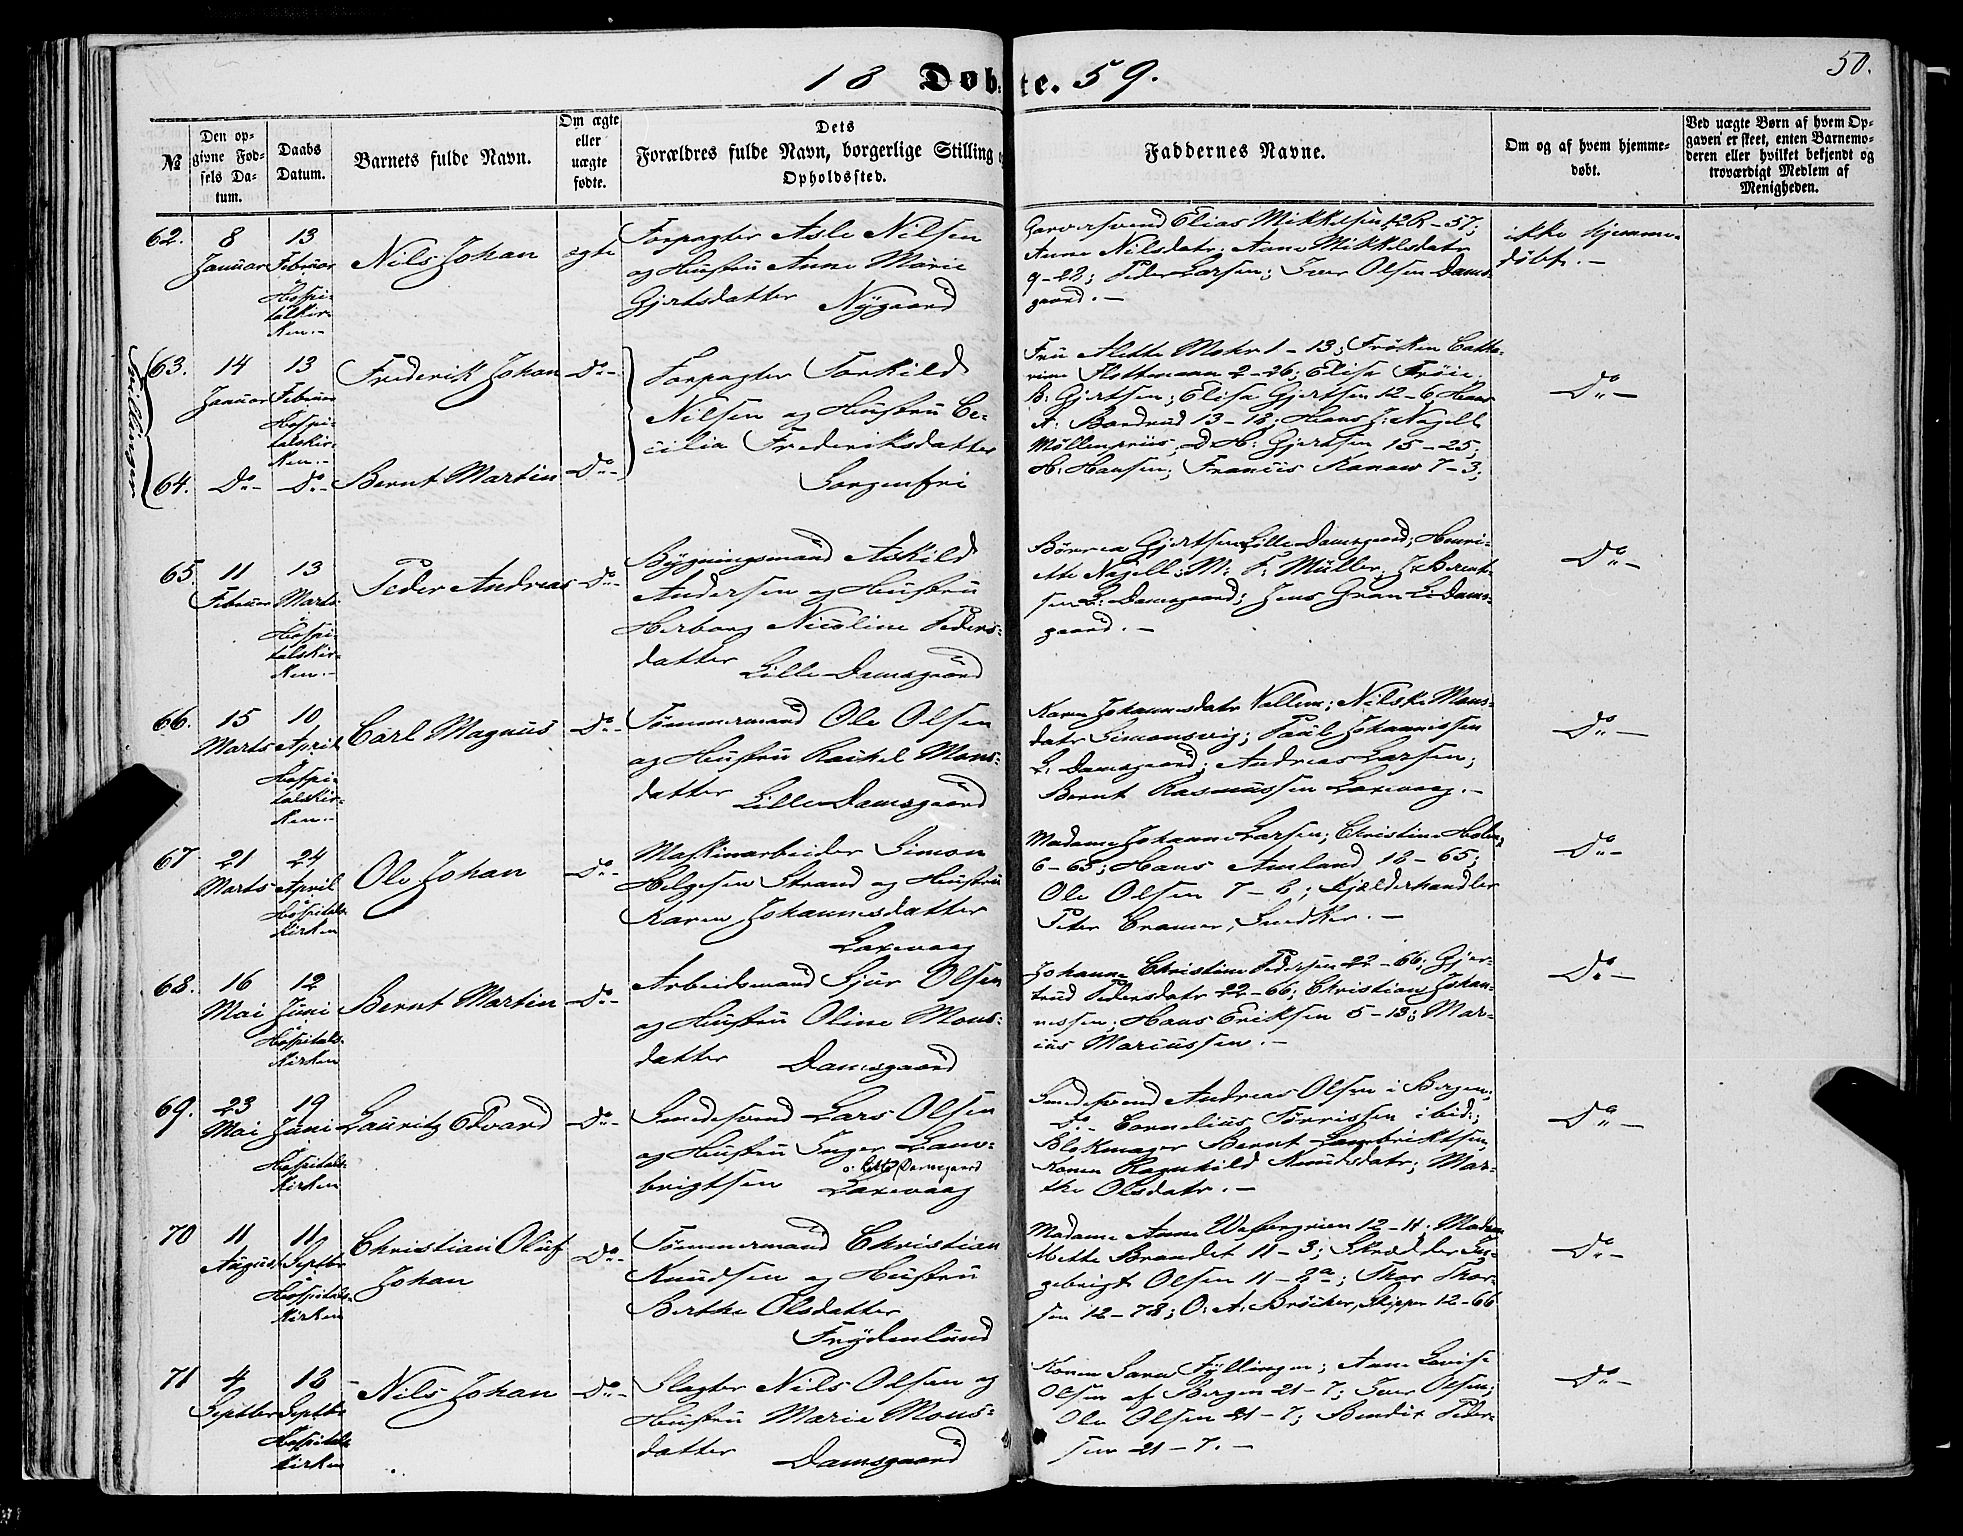 18 Døbte. 59.
50.
№
Den opgivne Fødsels Datum.
Daabs Datum.
Barnets fulde Navn.
Om ægte eller uægte fødte.
Dets Forældres fulde Navn, borgerlige Stilling
Opholdssted.
Faddernes Navne.
Om og af hvem hjemmedøbt.
Ved uægte Børn af hvem Opgaven er skeet, enten Barnemoderen eller hvilket bekjendt og troværdigt Medlem af Menigheden.
62.
8 Januar
13 Februar
Hospitalskirken.-
Nils Johan
egte
Forpagter Asle Nilsen
og Hustru Anne Marie
Gjertsdatter Nygaard
Garversvend Elias Mikkelsen 12R-57;
Anne Nilsdatr; Anne Mikkelsdatr
9-28; Peder Larsen; Iver Olsen Dams-
gaard.-
ikke hjemme-
døbt.-
Tvillinger
63.
14 Januar
13 Februar
Hospitalskirken.-
Frederik Johan
Do-
Forpagter Torkild
Nilsen og Hustru Ce-
cilia Frederiksdatter
Sorgenfri
Frü Alette Mohr 1-13; Frøken Catha-
rine Flottmann 2-26; Elisa Frøie
B: Gjertsen; Elisa Gjertsen 12-6; Hans
A: Bondrud 13-18; Hans J: Nagell
Møllenpriis; D H: Gjertsen 15-25;
H: Hansen; Francis Kanaw 7-3;
Do-
64.
Do-
Do-
Bernt Martin
Do-
65.
11 Februar
13 Marts
Hospitalskirken.-
Peder Andreas
Do-
Bygningsmand Askild
Andersen og Hustru
Herborg Nicoline Peders-
datter Lille Damsgaard
Gjertsen Lille Damsgaard; Henri-
ette Nagell; M: F: Müller; J: Bernt-
sen L: Damsgaard; Jens Gran L: Dams-
gaard.-
Do-
66.
15 Marts
10 April
Hospitalskirken.-
Carl Magnus
Do-
Tømmermand Ole Olsen
og Hustru Rachel Mons-
datter Lille Damsgaard
Karen Johannesdatr Vallem; Nilske Mons-
datr Simonsvig; Paul Johannissen
L: Damsgaard; Andreas Larsen;
Bernt Rasmussen Laxevaag.-
Do-
67
21 Marts
24 April
Hospitalskirken
Ole Johan
Do-
Maskinarbeider Simon
Helgesen Strand og Hustru
Karen Johannesdatter
Laxevaag
Madame Johanne Larsen; Christine Holm
6-65; Hans Amland 18-65;
Ole Olsen 7-6; Kjælderhandler
Peter Cramer, Snedker.-
Do-
68.
16 Mai
12 Juni
Hospitalskirken
Bernt Martin
Do-
Arbeidsmand Sjur Olsen
og Hustru Oline Mons-
datter Damsgaard
Johanne Christine Pedersen 22-66; Gjer-
trud Pedersdatr 22-66; Christian Johan-
nessen; Hans Eriksen 5-13; Mar-
ius Mariussen.-
Do-
69.
23 Mai
19 Juni
Hospitalskirken
Lauritz Edvard
Do-
Smedesvend Lars Olsen
og Hustru Inger Lam-
brigtsen
o: Lille Damsgaard
Laxevaag
Smedesvend Andreas Olsen i Bergen;
Do- Cornelius Tørrissen ibid;
Blokmager Bernt Lambriktsen;
Konen Ragnhild Knudsdatr; Mar-
the Olsdatr.-
Do-
70
11 August
11 Septbr
Hospitalskirken
Christian Oluf
Johan
Do-
Tømmermand Christian
Knudsen og Hustru
Berthe Olsdatter
Frydenlund
Madame Anne Westergrien 12-11. Madam
Mette Brandet 11-3; Skrædder In-
gebrigt Olsen 11-2a; Thor Thor-
sen 12-78; O: A: Brøcker, Skipper 12-66
Do-
71
4 Septbr
18 Septbr
Hospitalskirken
Nils Johan
Do-
Slagter Nils Olsen og
Hustru Marie Mons-
datter Damsgaard
Konen Sara Fyllingen; Anne Lovise
Olsen af Bergen 21-7; Iver Olsen;
Ole Olsen 21-7; Bendix Peder-
sen 21-7.-
Do-